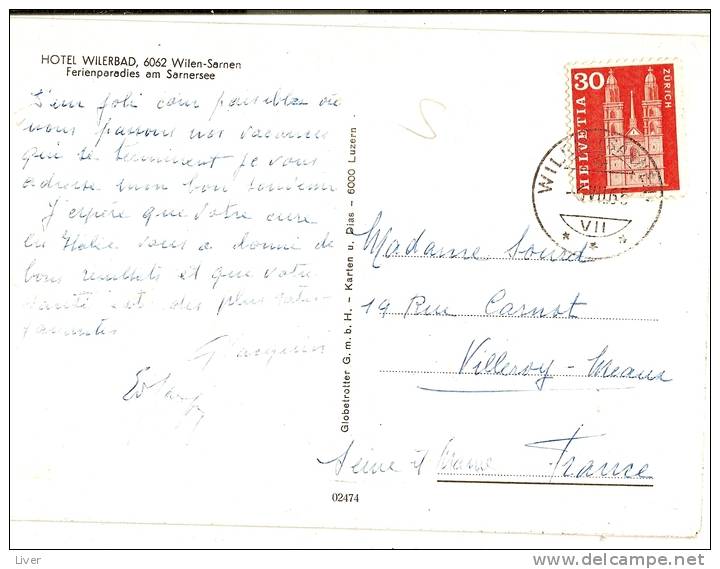 HOTEL WILERBAD, 6062 Wilen-Sarnen
Ferienparadies am Sarnersee
D'un joli coin paisible où
nous passons nos vacances
qui se terminent je vous
adresse mon bon souvenir
J'espère que votre cure
en Italie vous a donné de
bons resultats et que votre
santé est des plus satis-
faisantes
Globetrotter G.m.b.H. – Karten u. Dias – 6000 Luzern
30
HELVETIA
ZÜRICH
VII
Madame Sourd
19 Rue Carnot
Villeroy-Meaux
Seine et Marne France
02474
Liver
delcampe.net